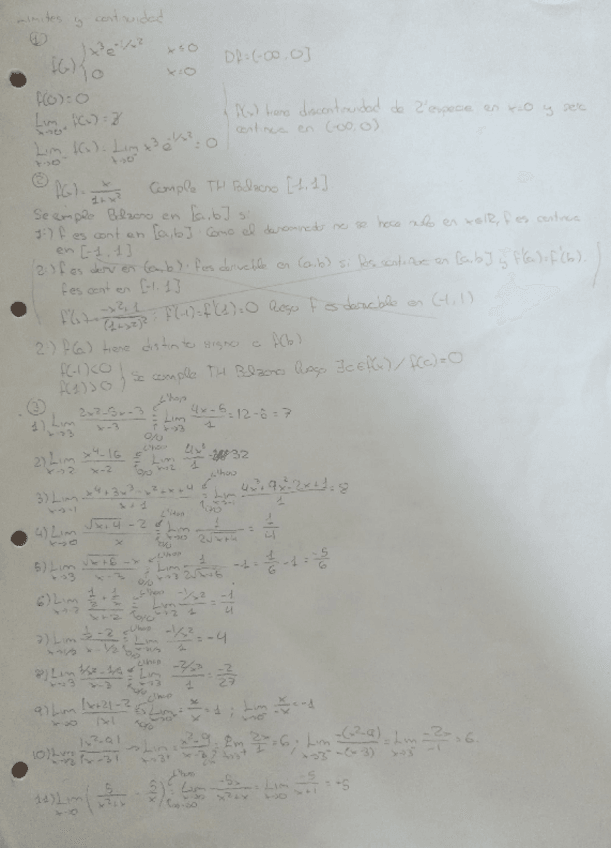 Limites y continuidad
①
f(x) { x³e^(-1/x²) x≤0 Df=(-∞,0]
0 x=0
f(0)=0
Lim x→0⁺ f(x)=∄ f(x) tiene discontinuidad de 2ª especie en x=0 y será
Lim x→0⁻ f(x)= Lim x→0⁻ x³e^(-1/x²) = 0 continua en (-∞,0)
② f(x)= x/(1+x²) Cumple TH Bolzano [-1,1]
Se cumple Bolzano en [a,b] si
1º) f es cont en [a,b]. Como el denominador no se hace nulo en x∈ℝ, f es continua
en [-1,1]
2º) f es deriv en (a,b). f es derivable en (a,b) si f es continua en [a,b] y f'(a)=f'(b).
f es cont en [-1,1]
f'(x)= (-x²+1)/(1+x²)²; f'(-1)=f'(1)=0 luego f es derivable en (-1,1)
2º) f(a) tiene distinto signo a f(b)
f(-1)<0
f(1)>0 } Se cumple TH Bolzano luego ∃c∈f(x) / f(c)=0
③
1) Lim x→3 (2x²-5x-3)/(x-3) = Lim x→3 (4x-5)/1 = 12-5 = 7
2) Lim x→2 (x⁴-16)/(x-2) = Lim x→2 4x³/1 = 32
3) Lim x→-1 (x⁴+3x³-x²+x+4)/(x+1) = Lim x→-1 (4x³+9x²-2x+1)/1 = 8
4) Lim x→0 (√(x+4) - 2)/x = Lim x→0 1/(2√(x+4)) = 1/4
5) Lim x→3 (√(x+6) - x)/(x-3) = Lim x→3 1/(2√(x+6)) - 1 = 1/6 - 1 = -5/6
6) Lim x→-2 (1/2 + 1/x)/(x+2) = Lim x→-2 (-1/x²)/1 = -1/4
7) Lim x→1/2 (1/x - 2)/(x-1/2) = Lim (-1/x²)/1 = -4
8) Lim x→3 (1/x² - 1/9)/(x-3) = Lim x→3 (-2/x³)/1 = -2/27
9) Lim x→0 (|x+2|-2)/|x| = Lim x→0⁺ x/x = 1; Lim x→0⁻ x/-x = -1
10) Lim x→3 |x²-9|/|x-3| → Lim x→3⁺ (x²-9)/(x-3) = Lim x→3⁺ 2x/1 = 6; Lim x→3⁻ -(x²-9)/-(x-3) = Lim x→3⁻ -2x/-1 = 6.
11) Lim x→0 (5/(x²+x) - 5/x) = Lim x→0 -5x/(x²+x) = Lim x→0 -5/(x+1) = -5